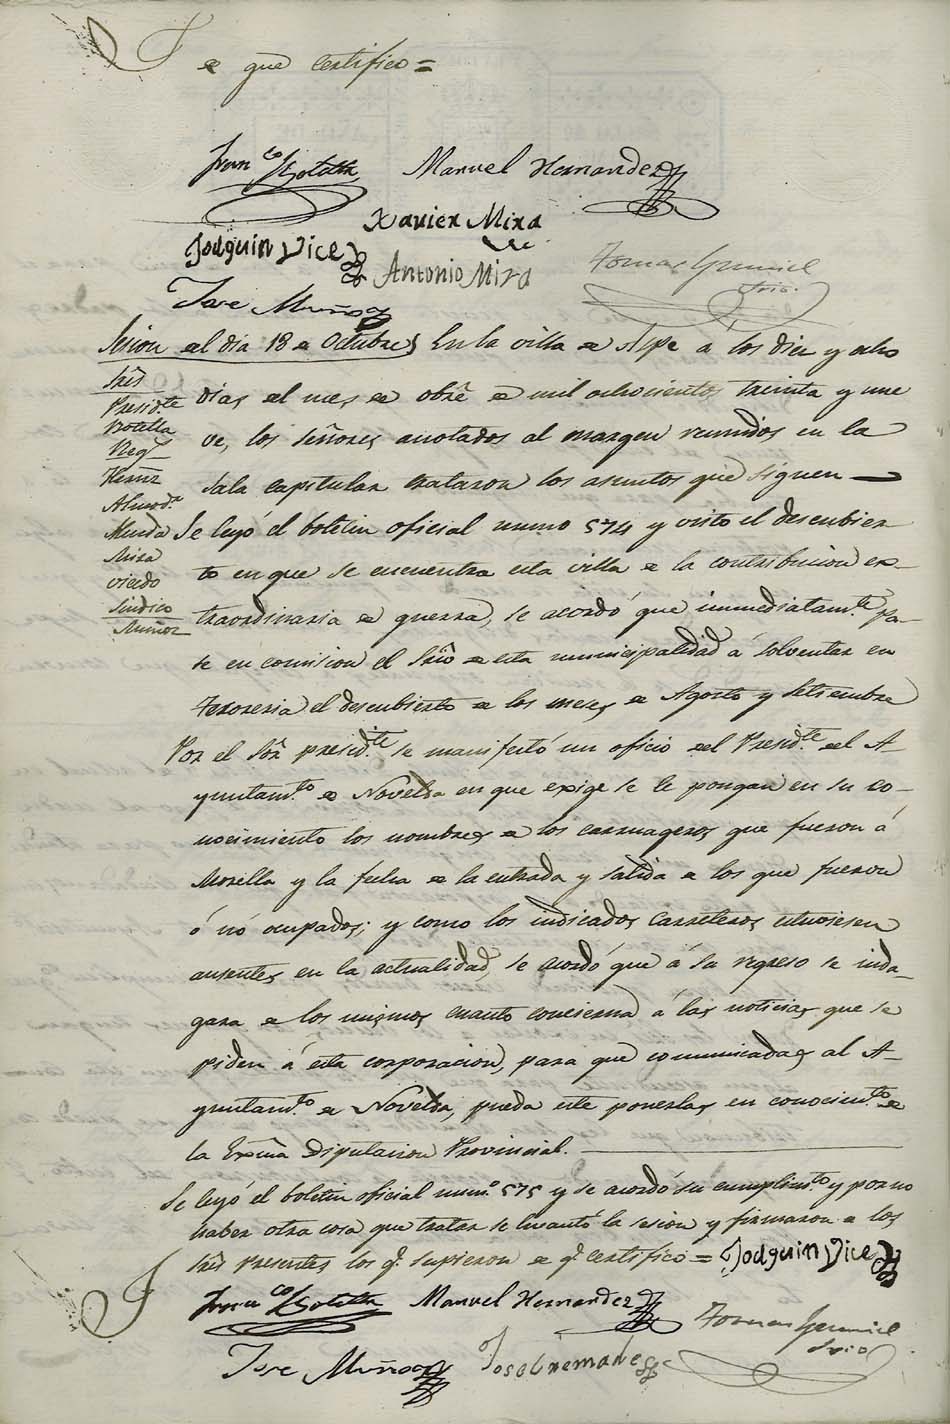 de que certifico =
Fran.co Botella Manuel Hernandez
Xavier Mira
Joaquin Vice
Antonio Mira
Tomas
Srio.
Jose Muñoz
Sesion del dia 18 de Octubre
En la villa de Aspe á los diez y ocho
Sres
Presid.te
Botella
Reg.
Hernz
Almod.r
Mira
Vicedo
Sindico
Muñoz
dias del mes de obre de mil ochocientos treinta y nue
ve, los señores anotados al margen reunidos en la
sala capitular trataron los asuntos que siguen —
Se leyó el boletin oficial numo 574 y visto el descubier
to en que se encuentra esta villa de la contribucion ex-
traordinaria de guerra, se acordó que immediatam.te pa-
se en comision el Srio de esta municipalidad á solventar en
Tesoreria el descubierto de los meses de Agosto y Setiembre
Por el Sor presid.te se manifestó un oficio del Presid.te del A-
yuntam.to de Novelda en que exige se le pongan en su co-
nocimiento los nombres de los carruageros que fueron á
Morella y la fecha de la entrada y salida de los que fueron
ó nó ocupados; y como los indicados carreteros estuviesen
ausentes en la actualidad, se acordó que á su regreso se inda-
gara de los mismos cuanto concierna á las noticias que se
piden á esta corporacion, para que comunicadas al A-
yuntam.to de Novelda, pueda este ponerlas en conocim.to de
la Exma Diputacion Provincial. —
Se leyó el boletin oficial num.o 575 y se acordó su cumplim.to y por no
haber otra cosa que tratar se levantó la sesion y firmaron de los
Sres presentes los q.e supieron de q.e certifico = Joaquin Vice
Fran.co Botella Manuel Hernandez
Tomas
Srio
Jose Muñoz